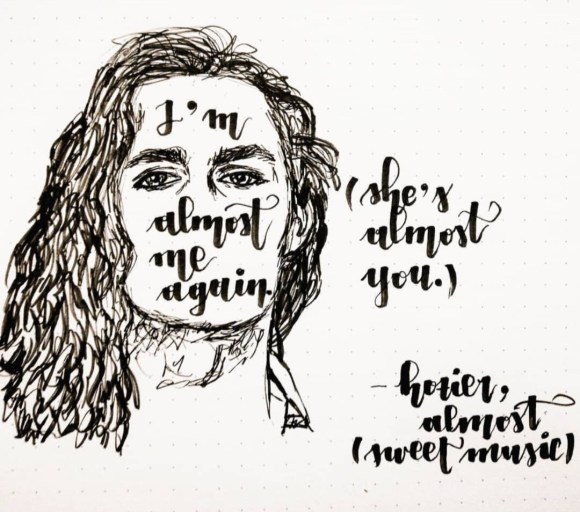 I'm
almost
me
again.
(she's
almost
you.)
- hozier,
almost
(sweet music)